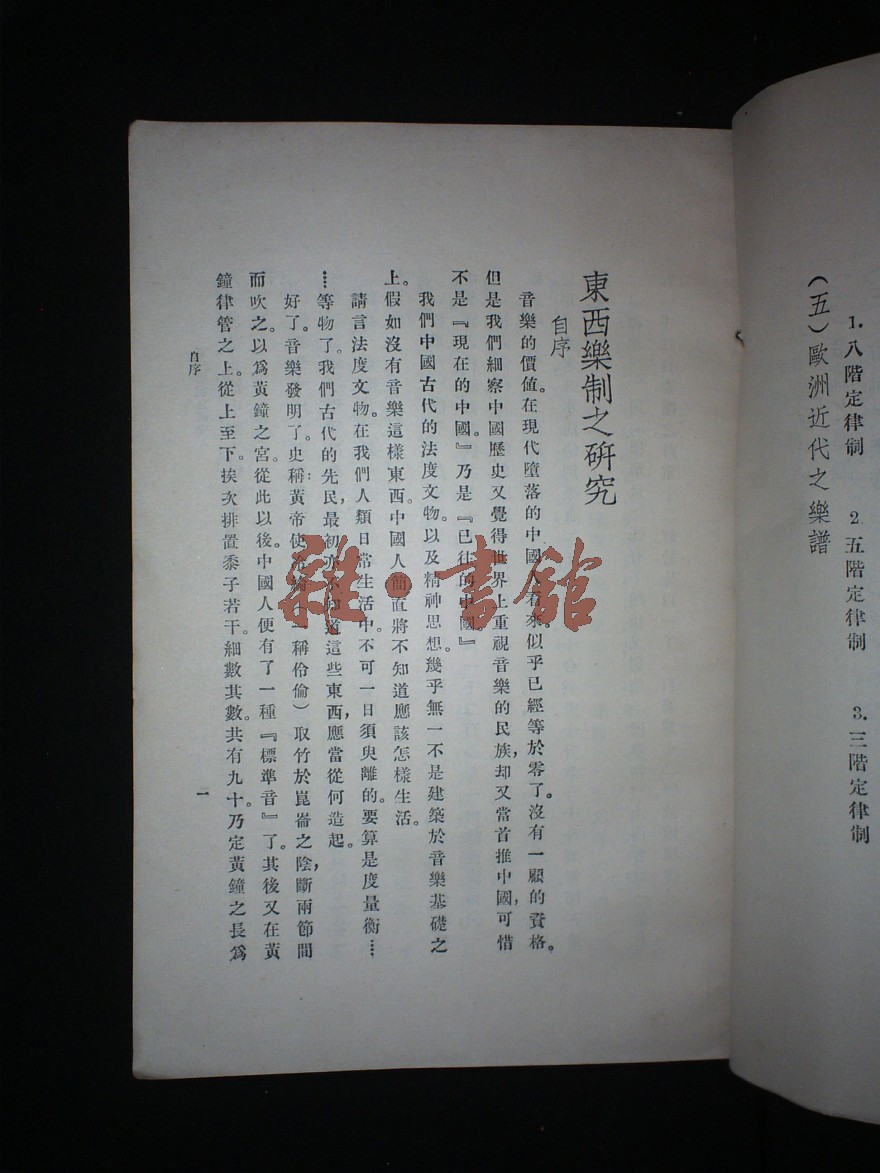 (五)歐洲近代之樂譜
1.八階定律制 2.五階定律制 3.三階定律制
東西樂制之研究
自序
音樂的價值。在現代墮落的中國人看來。似乎已經等於零了。沒有一顧的資格。
但是我們細察中國歷史又覺得世界上重視音樂的民族,却又當首推中國,可惜
不是『現在的中國。』乃是『已往的中國』
我們中國古代的法度文物。以及精神思想。幾乎無一不是建築於音樂基礎之
上。假如沒有音樂這樣東西。中國人簡直將不知道應該怎樣生活。
請言法度文物。在我們人類日常生活中。不可一日須臾離的。要算是度量衡……
…等物了。我們古代的先民,最初亦不知道這些東西,應當從何造起。
好了。音樂發明了。史稱:黃帝使伶綸(一稱伶倫)取竹於崑崙之陰,斷兩節間
而吹之。以爲黃鐘之宮。從此以後。中國人便有了一種『標準音』了。其後又在黃
鐘律管之上。從上至下。挨次排置黍子若干。細數其數。共有九十。乃定黃鐘之長爲
自序
一
雜·書館